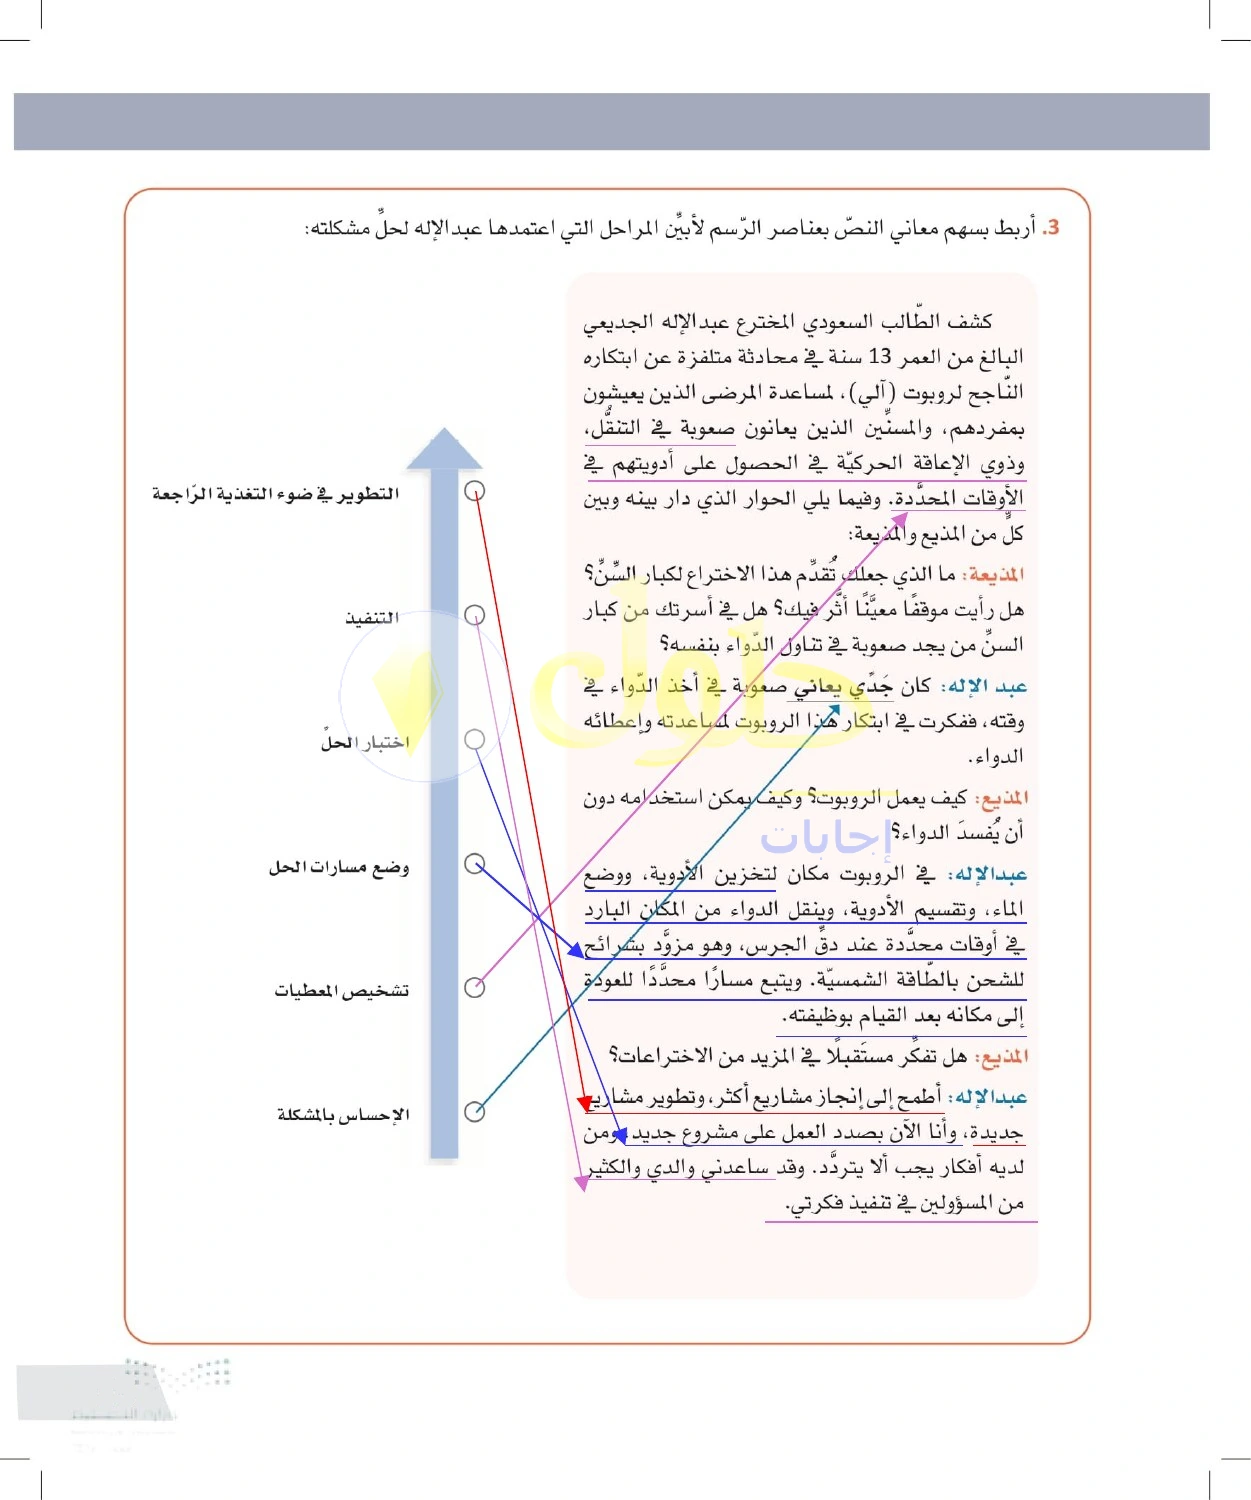 3. أربط بسهم معاني النصّ بعناصر الرّسم لأبيِّن المراحل التي اعتمدها عبدالإله لحلِّ مشكلته:
كشف الطّالب السعودي المخترع عبدالإله الجديعي
البالغ من العمر 13 سنة في محادثة متلفزة عن ابتكاره
النّاجح لروبوت (آلي)، لمساعدة المرضى الذين يعيشون
بمفردهم، والمسنِّين الذين يعانون صعوبة في التنقُّل،
وذوي الإعاقة الحركيّة في الحصول على أدويتهم في
الأوقات المحدَّدة. وفيما يلي الحوار الذي دار بينه وبين
كلٍّ من المذيع والمذيعة:
المذيعة: ما الذي جعلك تُقدِّم هذا الاختراع لكبار السِّنِّ؟
هل رأيت موقفًا معيَّنًا أثَّر فيك؟ هل في أسرتك من كبار
السنِّ من يجد صعوبة في تناول الدّواء بنفسه؟
عبد الإله: كان جَدِّي يعاني صعوبة في أخذ الدّواء في
وقته، ففكرت في ابتكار هذا الروبوت لمساعدته وإعطائه
الدواء.
المذيع: كيف يعمل الروبوت؟ وكيف يمكن استخدامه دون
أن يُفسدَ الدواء؟
عبدالإله: في الروبوت مكان لتخزين الأدوية، ووضع
الماء، وتقسيم الأدوية، وينقل الدواء من المكان البارد
في أوقات محدَّدة عند دقِّ الجرس، وهو مزوَّد بشرائح
للشحن بالطّاقة الشمسيّة. ويتبع مسارًا محدَّدًا للعودة
إلى مكانه بعد القيام بوظيفته.
المذيع: هل تفكِّر مستَقبلًا في المزيد من الاختراعات؟
عبدالإله: أطمح إلى إنجاز مشاريع أكثر، وتطوير مشاريع
جديدة، وأنا الآن بصدد العمل على مشروع جديد، ومن
لديه أفكار يجب ألا يتردَّد. وقد ساعدني والدي والكثير
من المسؤولين في تنفيذ فكرتي.
التطوير في ضوء التغذية الرّاجعة
التنفيذ
اختبار الحلِّ
وضع مسارات الحل
تشخيص المعطيات
الإحساس بالمشكلة
حلول
إجابات